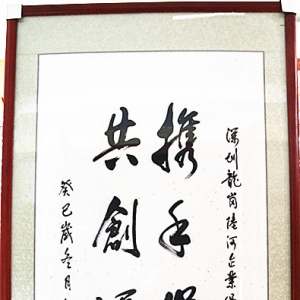 深圳龍崗陸河企業
携手
共創
癸巳歲冬月